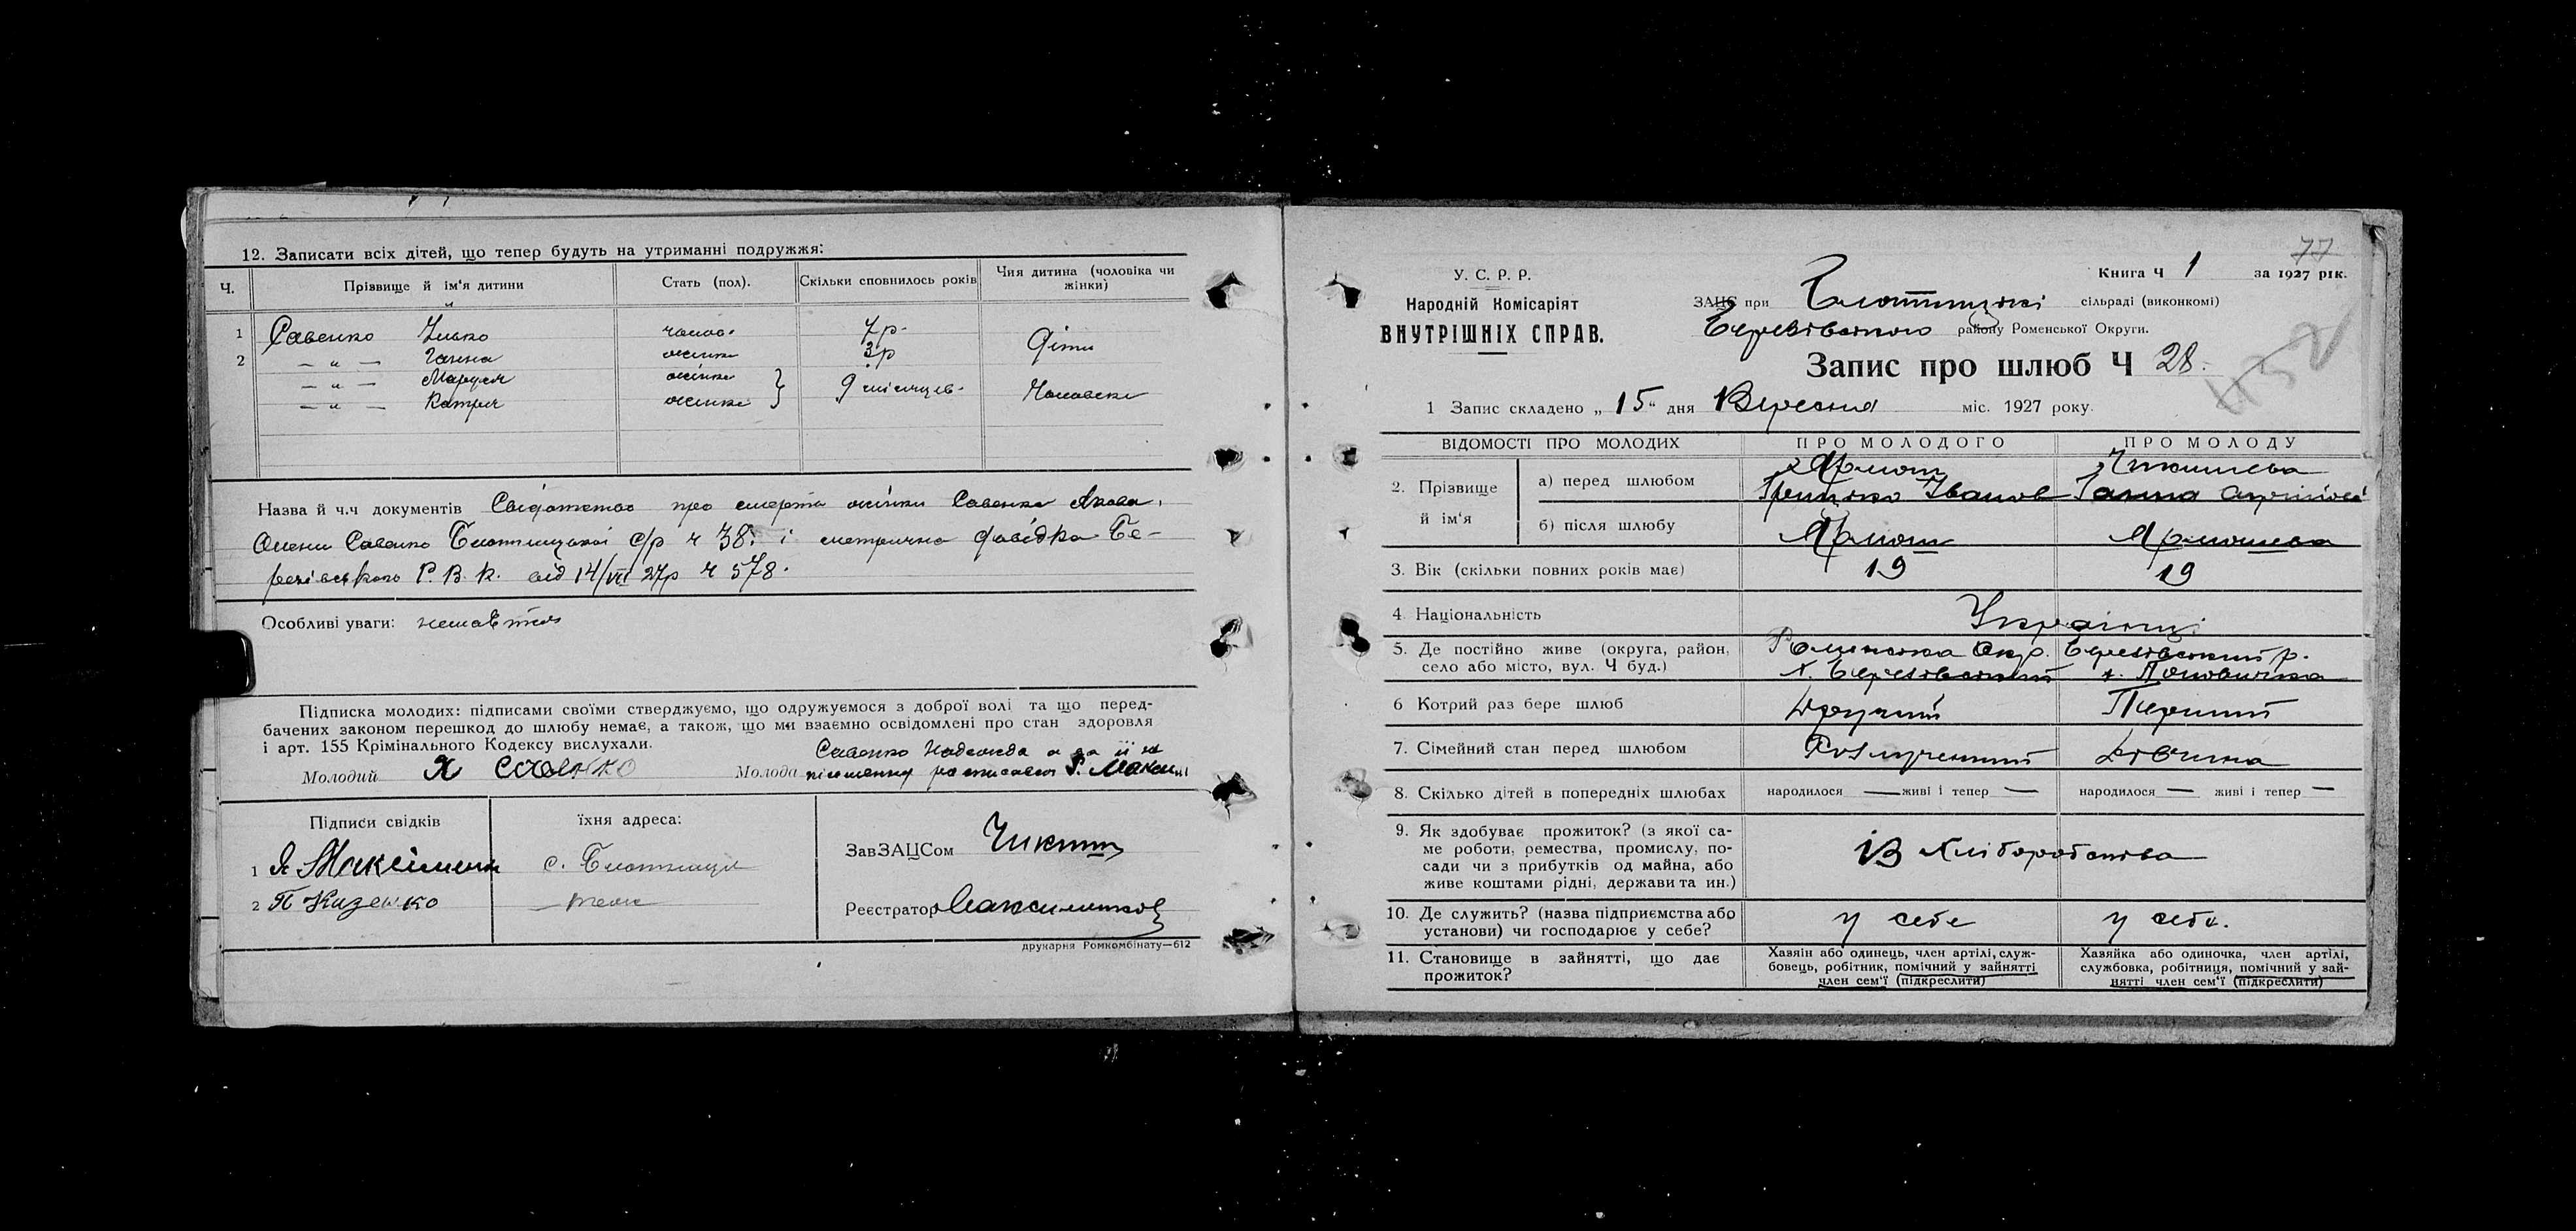 12. Записати всіх дітей, що тепер будуть на утриманні подружжя:
Ч. Прізвище й ім'я дитини Стать (пол). Скільки сповнилось років Чия дитина (чоловіка чи жінки)
1 Савенко 7 р.
2 — " — Ганна жінка 3 р Діти
— " — Маруся жінка 9 місяців. Чоловска
— " — Катря жінка
Назва й ч.ч документів Свідотство про смерть жінки Савенка Якова,
Олени Савенко с/р ч 38. і метрична довідка Бе-
резівського Р. В. К. від 14/VII 27р ч 578.
Особливі уваги:
Підписка молодих: підписами своїми стверджуємо, що одружуємося з доброї волі та що перед-
бачених законом перешкод до шлюбу немає, а також, що ми взаємно освідомлені про стан здоровля
і арт. 155 Крімінального Кодексу вислухали.
Савенко Надежда а за її не
Молодий Я Савенко Молода письменну росписався
Підписи свідків їхня адреса:
ЗавЗАЦСом
1 Я с.
2 П
Реєстратор
друкарня Ромкомбінату—612
77
У. С. Р. Р.
Народній Комісаріят
ВНУТРІШНІХ СПРАВ.
Книга Ч 1 за 1927 рік.
ЗАЦС при сільраді (виконкомі)
Березівського району Роменської Округи.
Запис про шлюб Ч 28.
452
1 Запис складено „ 15 " дня Вересня міс. 1927 року.
ВІДОМОСТІ ПРО МОЛОДИХ ПРО МОЛОДОГО ПРО МОЛОДУ
2. Прізвище й ім'я
а) перед шлюбом Ярмош Грицько Іванов Ганна
б) після шлюбу Ярмош Ярмошева
3. Вік (скільки повних років має) 19 19
4 Національність Українці
5. Де постійно живе (округа, район, Роменська Окр. Березівський р.
село або місто, вул. Ч буд.) х. Березівський х.
6 Котрий раз бере шлюб Другий Перший
7. Сімейний стан перед шлюбом Розлучений Дівчина
8. Скілько дітей в попередніх шлюбах народилося — живі і тепер — народилося — живі і тепер —
9. Як здобуває прожиток? (з якої са-
ме роботи, ремества, промислу, по-
сади чи з прибутків од майна, або
живе коштами рідні, держави та ин.)
Із хліборобства
10. Де служить? (назва підприємства або
установи) чи господарює у себе?
у себе у себе.
11. Становище в зайнятті, що дає
прожиток?
Хазяін або одинець, член артілі, служ-
бовець, робітник, помічний у зайнятті
член сем'ї (підкреслити)
Хазяйка або одиночка, член артілі,
службовка, робітниця, помічний у зай-
нятті член сем'ї (підкреслити)